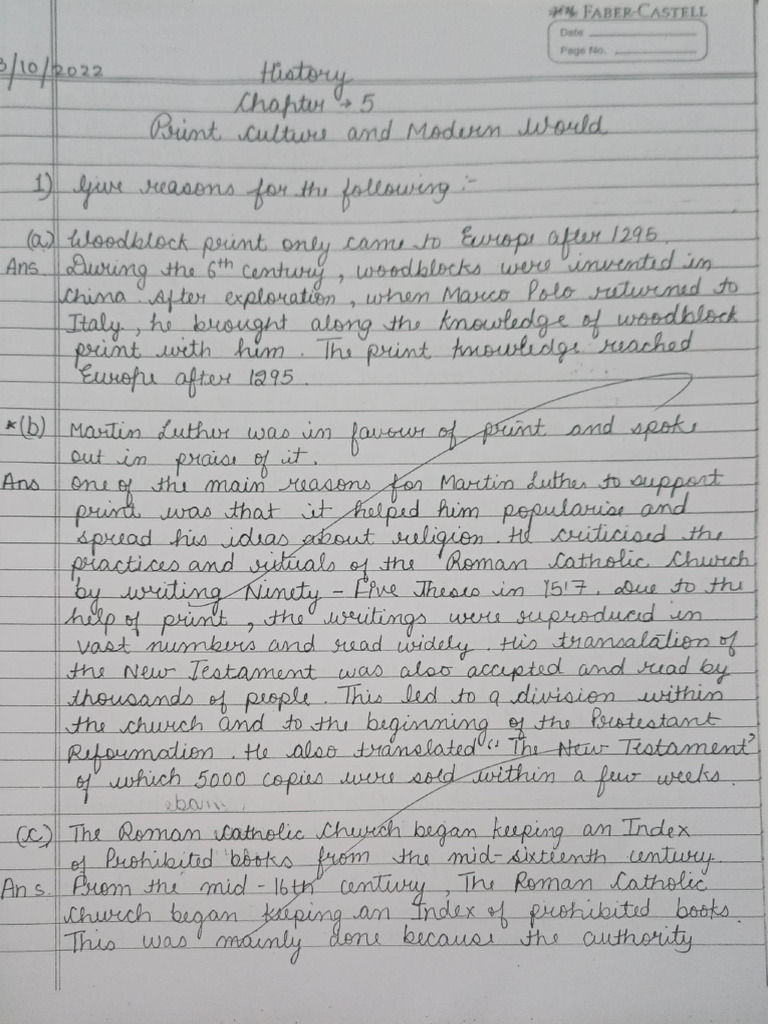 FABER-CASTELL
Date
Page No.
3/10/2022
History
Chapter → 5
Print culture and Modern World
1) Give reasons for the following :-
(a) Woodblock print only came to Europe after 1295.
Ans. During the 6th century, woodblocks were invented in
China. After exploration, when Marco Polo returned to
Italy, he brought along the knowledge of woodblock
print with him. The print knowledge reached
Europe after 1295.
*(b) Martin Luther was in favour of print and spoke
out in praise of it.
Ans One of the main reasons for Martin Luther to support
print was that it helped him popularise and
spread his ideas about religion. He criticised the
practices and rituals of the Roman Catholic Church
by writing Ninety-Five Theses in 1517. Due to the
help of print, the writings were reproduced in
vast numbers and read widely. His transalation of
the New Testament was also accepted and read by
thousands of people. This led to a division within
the church and to the beginning of the Protestant
Reformation. He also translated "The New Testament"
of which 5000 copies were sold within a few weeks.
(c) The Roman Catholic Church began keeping an Index
of Prohibited books from the mid-sixteenth century.
Ans. From the mid-16th century, The Roman Catholic
Church began keeping an Index of prohibited books.
This was mainly done because the authority